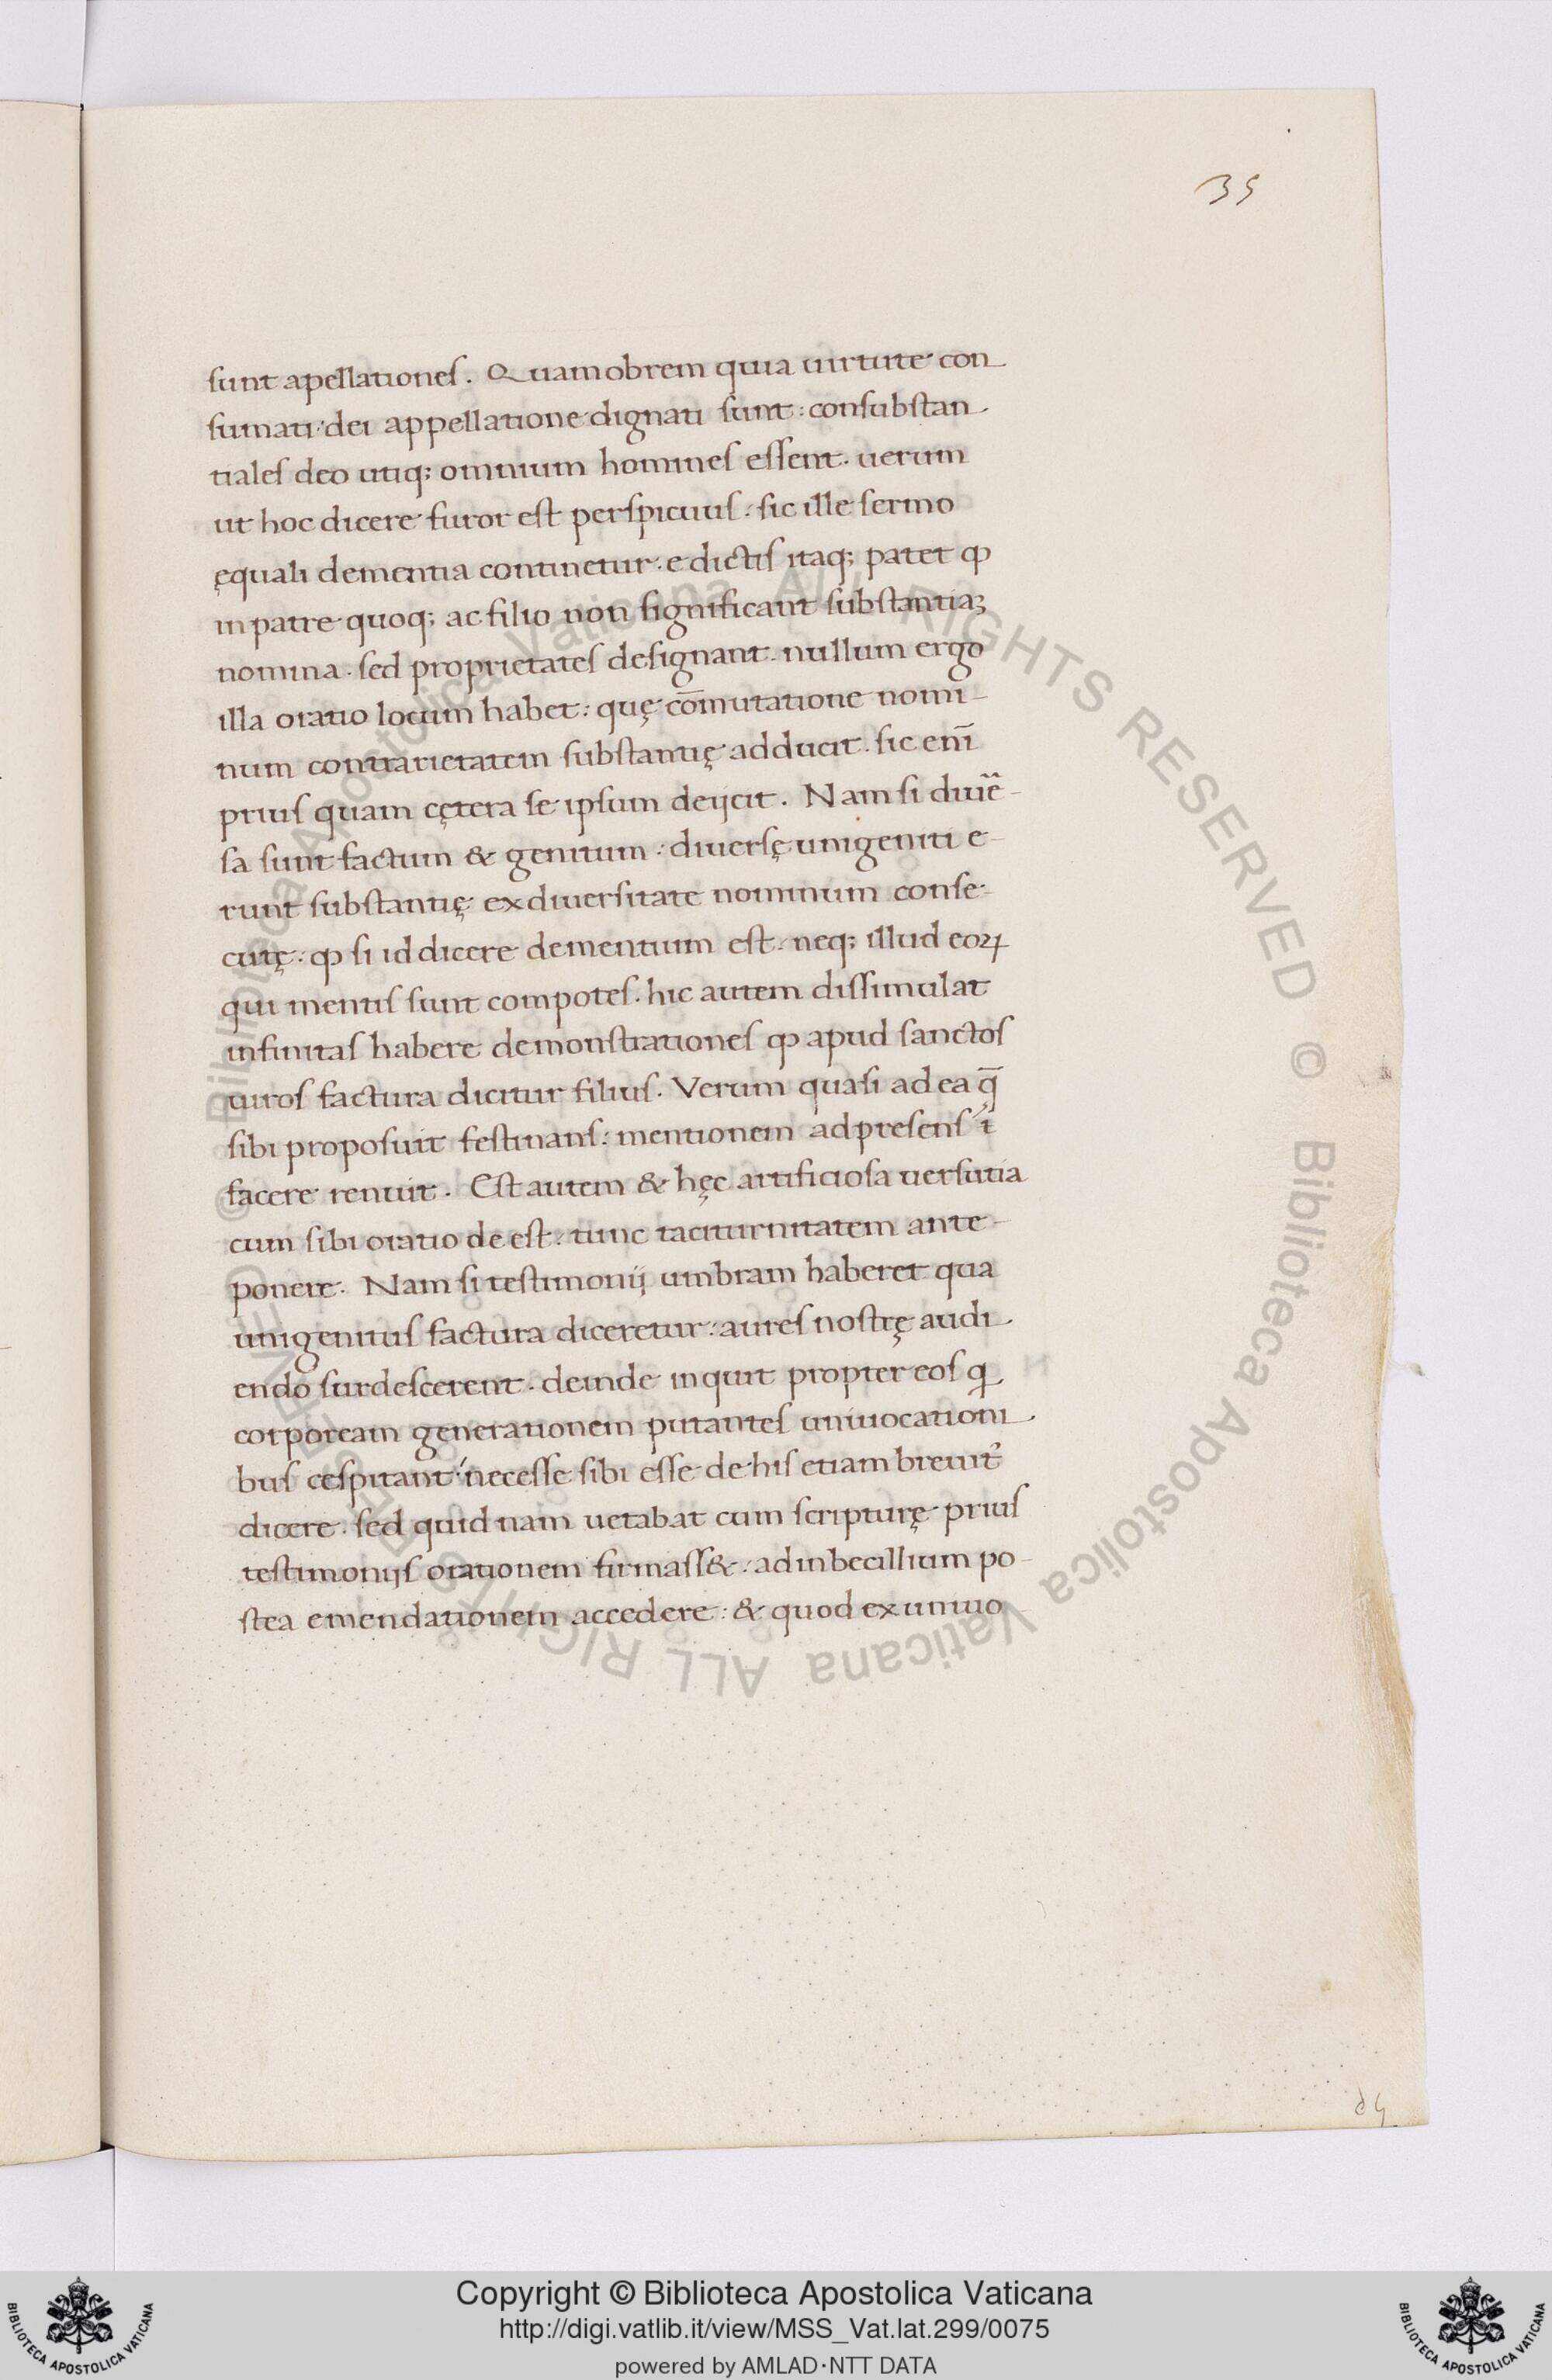 35
sunt apellationes. Quamobrem quia uirtute con-
sumati dei appellatione dignati sunt: consubstan-
tiales deo utiq; omnium homines essent. uerum
ut hoc dicere furor est perspicuus: sic ille sermo
ęquali dementia continetur. e dictis itaq; patet ꝙ
in patre quoq; ac filio non significant substantiaꝫ
nomina. sed proprietates designant. nullum ergo
illa oratio locum habet: quę cōmutatione nomi-
num contrarietatem substantię adducit. sic enī
prius quam cętera se ipsum deijcit. Nam si diuē-
sa sunt factum & genitum: diuersę unigeniti e-
runt substantię ex diuersitate nominum conse-
cutę: ꝙ si id dicere dementium est: neq; illud eoꝝ
qui mentis sunt compotes. hic autem dissimulat
infinitas habere demonstrationes ꝙ apud sanctos
uiros factura dicitur filius. Verum quasi ad ea q̄
sibi proposuit festinans: mentionem ad presens ī
facere renuit. Est autem & hęc artificiosa uersutia
cum sibi oratio de est: tunc taciturnitatem ante-
ponere. Nam si testimonij umbram haberet qua
unigenitus factura diceretur: aures nostrę audi-
endo surdescerent. deinde inquit propter eos q
corpoream generationem putantes uniuocationi-
bus cespitant: necesse sibi esse de his etiam breuit᾽
dicere. sed quid nam uetabat cum scripturę prius
testimonijs orationem firmass&: ad inbecillium po-
stea emendationem accedere: & quod ex uniuo-
d4
© Biblioteca Apostolica Vaticana ALL RIGHTS RESERVED © Biblioteca Apostolica Vaticana ALL RIGHTS RESERVED
Copyright © Biblioteca Apostolica Vaticana
http://digi.vatlib.it/view/MSS_Vat.lat.299/0075
powered by AMLAD·NTT DATA
BIBLIOTECA APOSTOLICA VATICANA
BIBLIOTECA APOSTOLICA VATICANA